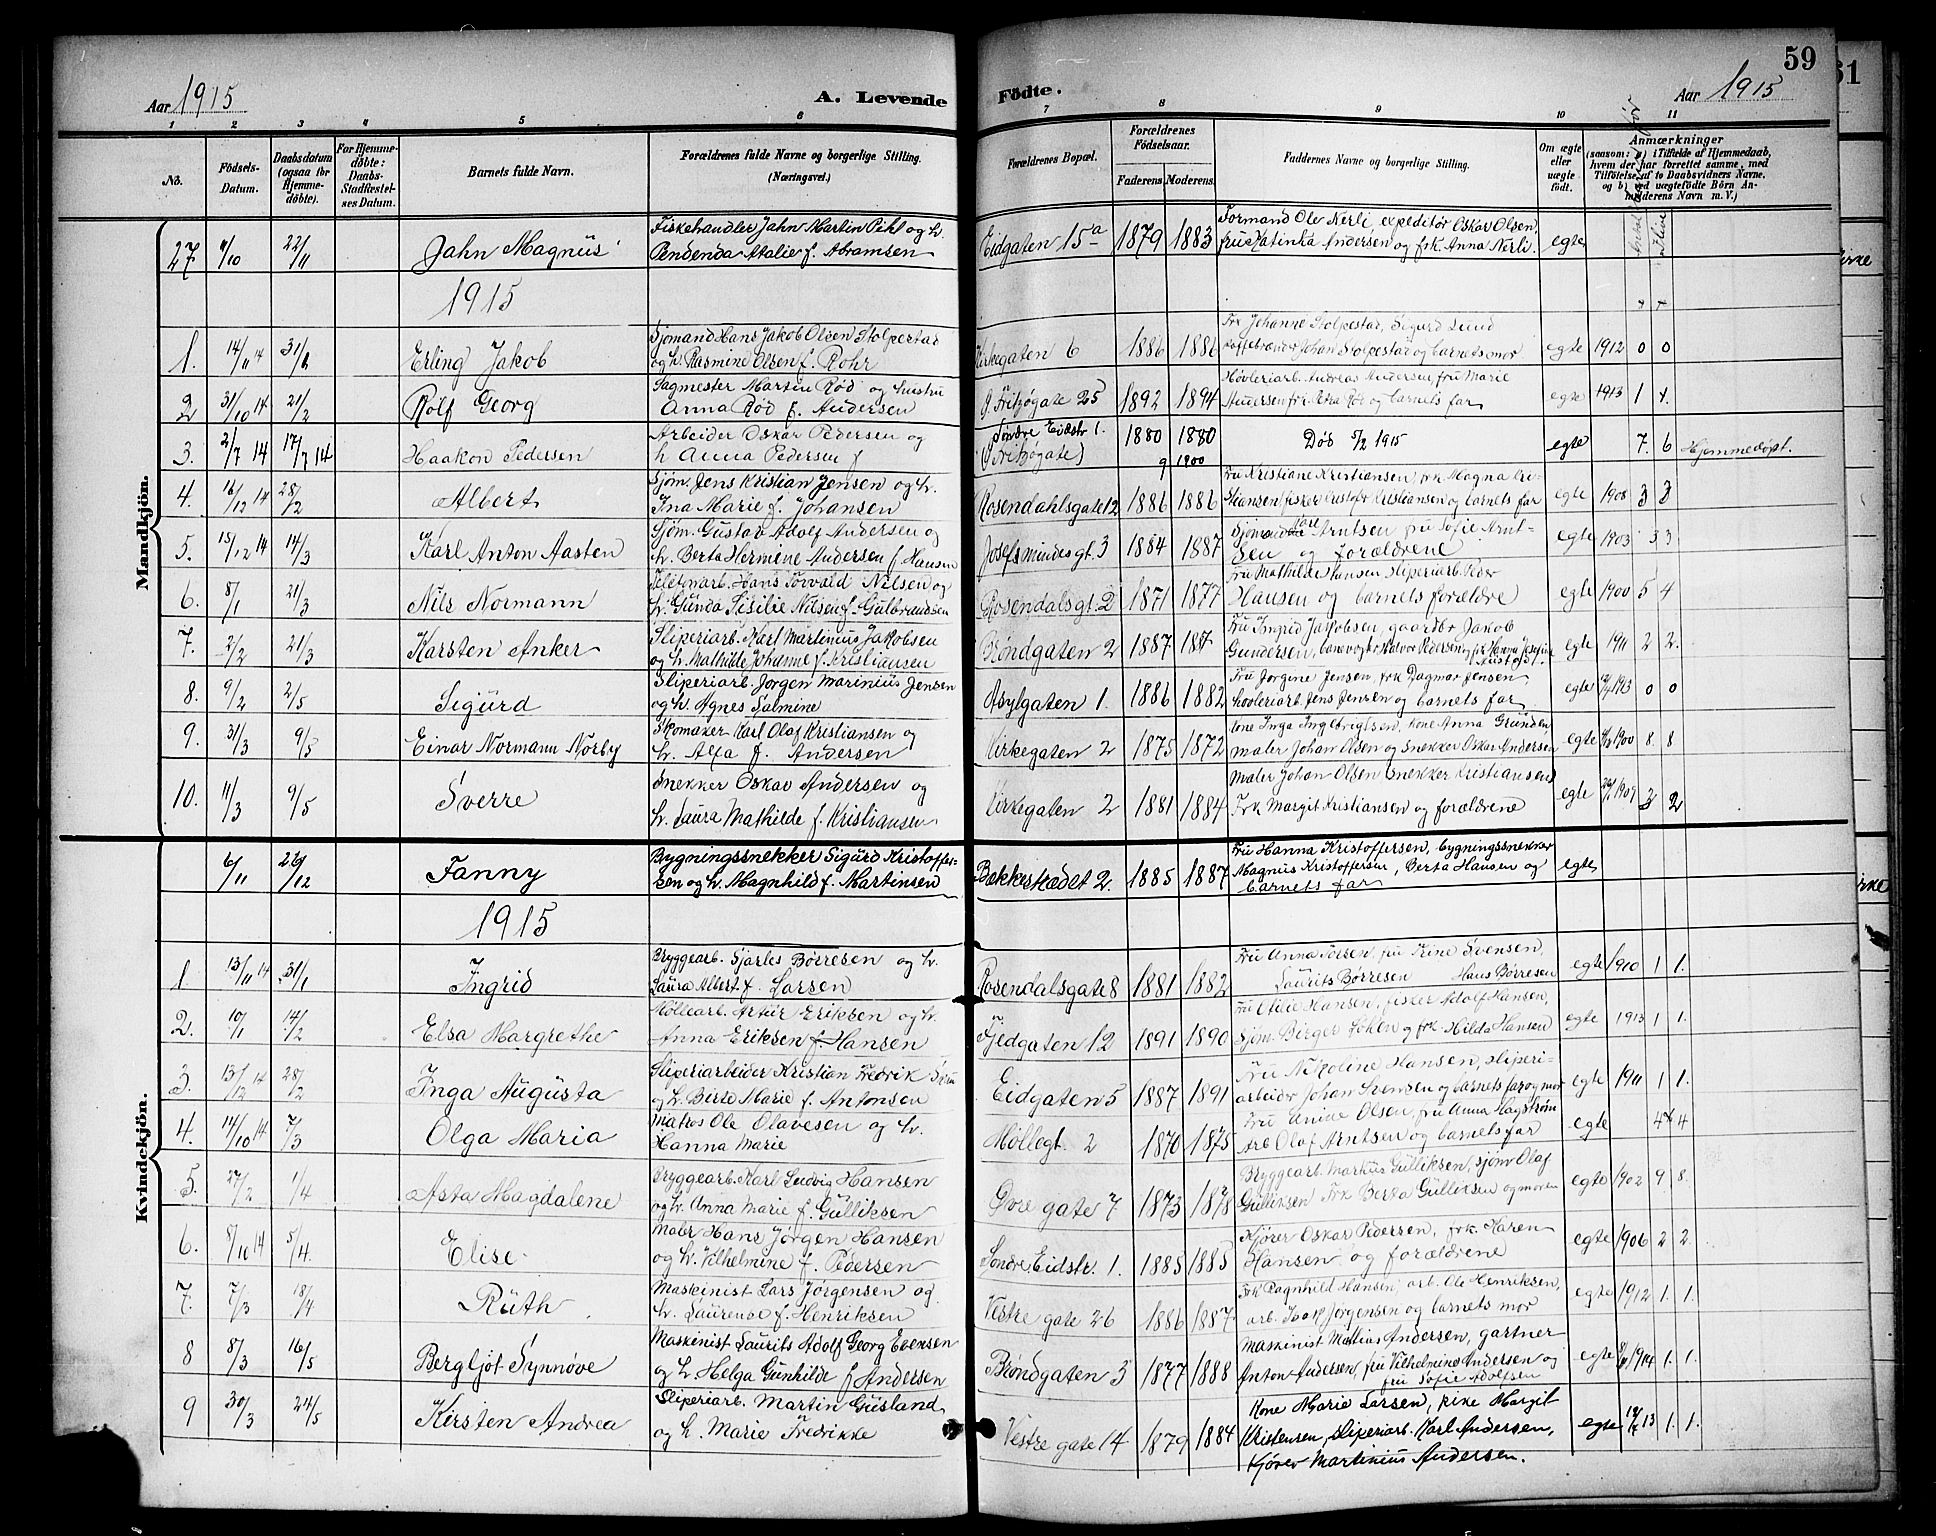 59
61
Aar 1915
A. Levende
Födte.
Aar 1915
1 2 3 4 5 6 7 8 9 10 11
No.
Födsels-Datum.
Daabsdatum (ogsaa for Hjemmedöbte).
For Hjemmedöbte: Daabs-Stadfæstelses Datum.
Barnets fulde Navn.
Forældrenes fulde Navne og borgerlige Stilling. (Næringsvei.)
Forældrenes Bopæl.
Forældrenes Födselsaar.
Faderens. Moderens.
Faddernes Navne og borgerlige Stilling.
Om ægte eller uægte födt.
Anmærkninger
(saasom: a) i Tilfælde af Hjemmedaab, hvem der har forrettet samme, med Tilföielse af to Daabsvidners Navne, og b) ved uægtefödte Börn Anmelderens Navn m. V.)
Mandkjön.
27 9/10 22/11 Jahn Magnus Fiskehandler Jahn Martin Pihl og h. Pendenda Atalie f. Abramsen Eidgaten 15a 1879 1883 Formand Ole Nerli, expeditör Oskar Olsen, fru Katinka Andersen og frk Anna Nerli. egte
1915
1. 14/11 14 31/1 Erling Jakob Sjömand Hans Jakob Olsen Stolpestad og h. Rasmine Olsen f. Rohr Kirkegaten 6 1886 1886 Frk Johanne Stolpestad, Sigurd Lund Kaffebrænder Johan Stolpestad og barnets mor egte 1912 0 0
2 31/10 14 21/2 Rolf Georg Sagmester Martin Röd og hustru Anna Röd f. Andersen G. Fritzögate 25 1892 1894 Hövleriarb. Andreas Andersen, fru Marie Andersen frk. Petra Röd og barnets far egte 1913 1 1.
3. 2/7 14 17/7 14 Haakon Pedersen Arbeider Oskar Pedersen og h. Anna Pedersen f Söndre Eidstr 1. (Fritzögate) 1880 1880 Död 5/2 1915 egte 7. 6 Hjemmedöpt.
4. 16/12 14 28/2 Albert Sjöm. Jens Kristian Jensen og h. Ina Marie f. Johansen Rosendahlsgate 12 1886 1886 Fru Kristiane Kristiansen, frk Magna Kristiansen, fisker Kristofer Kristiansen og barnets far egte 1908 3 3
5. 15/12 14 14/3 Karl Anton Aasten Sjöm. Gustav Adolf Andersen og h. Berta Hermine Andersen f. Hansen Josefsmindesgt. 3 1884 1887 Sjömand Arntsen fru Sofie Arntsen og forældrene egte 1903 3 3
6. 8/1 21/3 Nils Normann Telefonarb. Hans Torvald Nilsen og h. Gunda Sisilie Nilsen f. Gulbrandsen Rosendalsgt. 2 1871 1877 Fru Mathilde Hansen, sliperiarb. Peder Hansen og barnets forældre egte 1900 5 4
7. 2/2 21/3 Karsten Anker Sliperiarb. Karl Martinius Jakobsen og h. Mathilde Johanne f. Kristiansen Bröndgaten 2 1887 Fru Ingrid Jakobsen, gaardbr Jakob Gundersen, banevogter Halvor Pedersen og frk Hanna Josefine egte 1911 2 2.
8. 9/2 2/5 Sigurd Sliperiarb. Jörgen Marinius Jensen og h. Agnes Salmine Asylgaten 1. 1886 1882 Fru Jörgine Jensen, frk Dagmar Jensen, hövleriarb. Jens Jensen og barnets far egte 1913 0 0
9. 31/3 9/5 Einar Normann Norby Skomaker Karl Olaf Kristiansen og h. Alfa f. Andersen Kirkegaten 2 1875 1872 Kone Inga Ingebrigtsen, kone Anna Grunden, maler Johan Olsen og Snekker Oskar Andersen egte 1900 8. 8
10. 11/3 9/5 Sverre Snekker Oskar Andersen og h. Laura Mathilde f. Kristiansen Kirkegaten 2 1881 1884 Maler Johan Olsen snekker Kristiansen Frk Margit Kristiansen og forældrene egte 1909 3 2
Kvindekjön.
6/11 26/12 Fanny Bygningssnekker Sigurd Kristoffersen og h. Magnhild f. Martinsen Bekkestædet 2. 1885 1887 Fru Hanna Kristoffersen, bygningssnekker Magnus Kristoffersen, Berta Hansen og barnets far egte
1915
1. 13/11 14 31/1 Ingrid Bryggearb. Sjarles Börresen og h. Laura Albert f. Larsen Rosendalsgate 8 1881 1882 Fru Anna Torsen, fru Trine Svensen, Laurits Börresen Hans Börresen egte 1910 1 1.
2. 10/1 14/2 Elsa Margrethe Möllearb. Artur Eriksen og h. Anna Eriksen f. Hansen Fjedgaten 12 1891 1890 Hansen, fisker Adolf Hansen, sjöm. Birger og frk Hilda Hansen egte 1913 1 1.
3. 13/12 14 28/2 Inga Augusta Sliperiarbeider Kristian Fredrik og h. Berte Marie f. Antonsen Eidgaten 5 1887 1891 Fru Nikoline Hansen, sliperiarbeider Johan Svensen og barnets far og mor egte 1911 1 1.
4. 14/10 14 7/3 Olga Maria Matros Ole Olavesen og h. Hanna Marie Möllegt. 2 1870 1875 Fru Anine Olsen, fru Anna Hagström arb. Olaf Arntsen og barnets far egte 4 4
5. 27/2 1/4 Asta Magdalene Bryggearb. Karl Ludvig Hansen og h. Anna Marie f. Gulliksen Övre gate 7 1873 1878 Bryggearb. Markus Gulliksen, sjöm Olaf Gulliksen Frk Berta Gulliksen og moren egte 1902 9 8.
6. 8/10 14 5/4. Elise Maler Hans Jörgen Hansen og h. Vilhelmine f. Pedersen Söndre Eidstr. 1. 1885 1885 Kjörer Oskar Pedersen, frk. Karen Hansen og forældrene egte 1906 2 2.
7. 7/3 18/4 Ruth Maskinist Lars Jörgensen og h. Laurense f. Henriksen Vestre gate 26 1886 1887 Frk Ragnhild Hansen, arb. Ole Henriksen, arb. Isak Jörgensen og barnets mor egte 1912 1. 1.
8 8/3 16/5 Bergljot Synnöve Maskinist Laurits Adolf Georg Evensen og h. Helga Gunhilde f Andersen Bröndgaten 3 1877 1888 Maskinist Mattias Andersen, gartner Anton Andersen, fru Vilhelmine Andersen og fru Sofie Adolfsen egte 1914 1. 1.
9 30/3 24/5 Kirsten Andrea Sliperiarb. Martin Gusland og h. Marie Fredrikke Vestre gate 14 1879 1884 Kone Marie Larsen, pike Margit Kristensen, sliperiarb. Karl Andersen, kjörer Martinius Andersen. egte 13 1. 1.